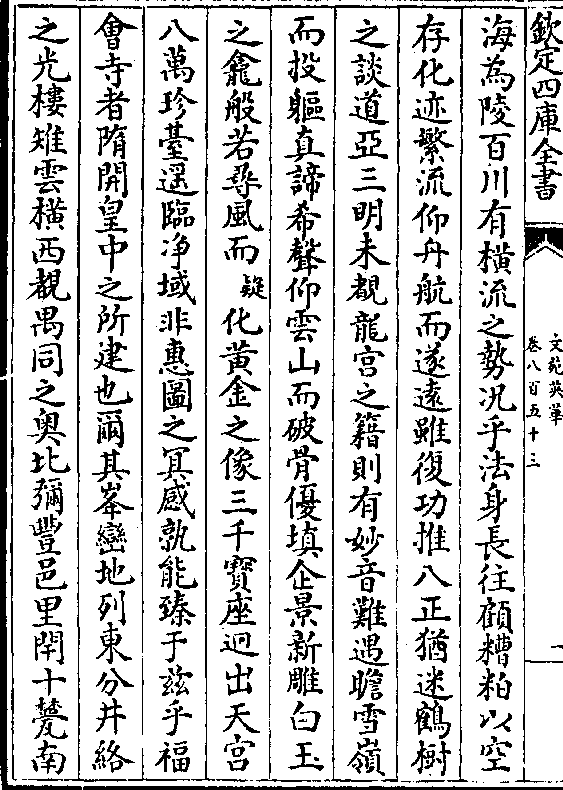 欽定四庫全書
文苑英華
卷八百五十三
一
海為陵百川有橫流之勢况乎法身長往顧糟粕以空
存化迹繁流仰舟航而遂遠雖復功推八正猶迷鶴樹
之談道亞三明未覩龍宫之籍則有妙音難遇瞻雪嶺
而投軀真諦希聲仰雲山而破骨優填企景新雕白玉
之龕般若尋風而疑化黄金之像三千寳座迥出天宫
八萬珍臺遥臨净域非惠圖之冥感孰能臻于兹乎福
㑹寺者隋開皇中之所建也爾其峯巒地列東分井絡
之光樓雉雲橫西覩禺同之奥北彌豐邑里閈十甍南